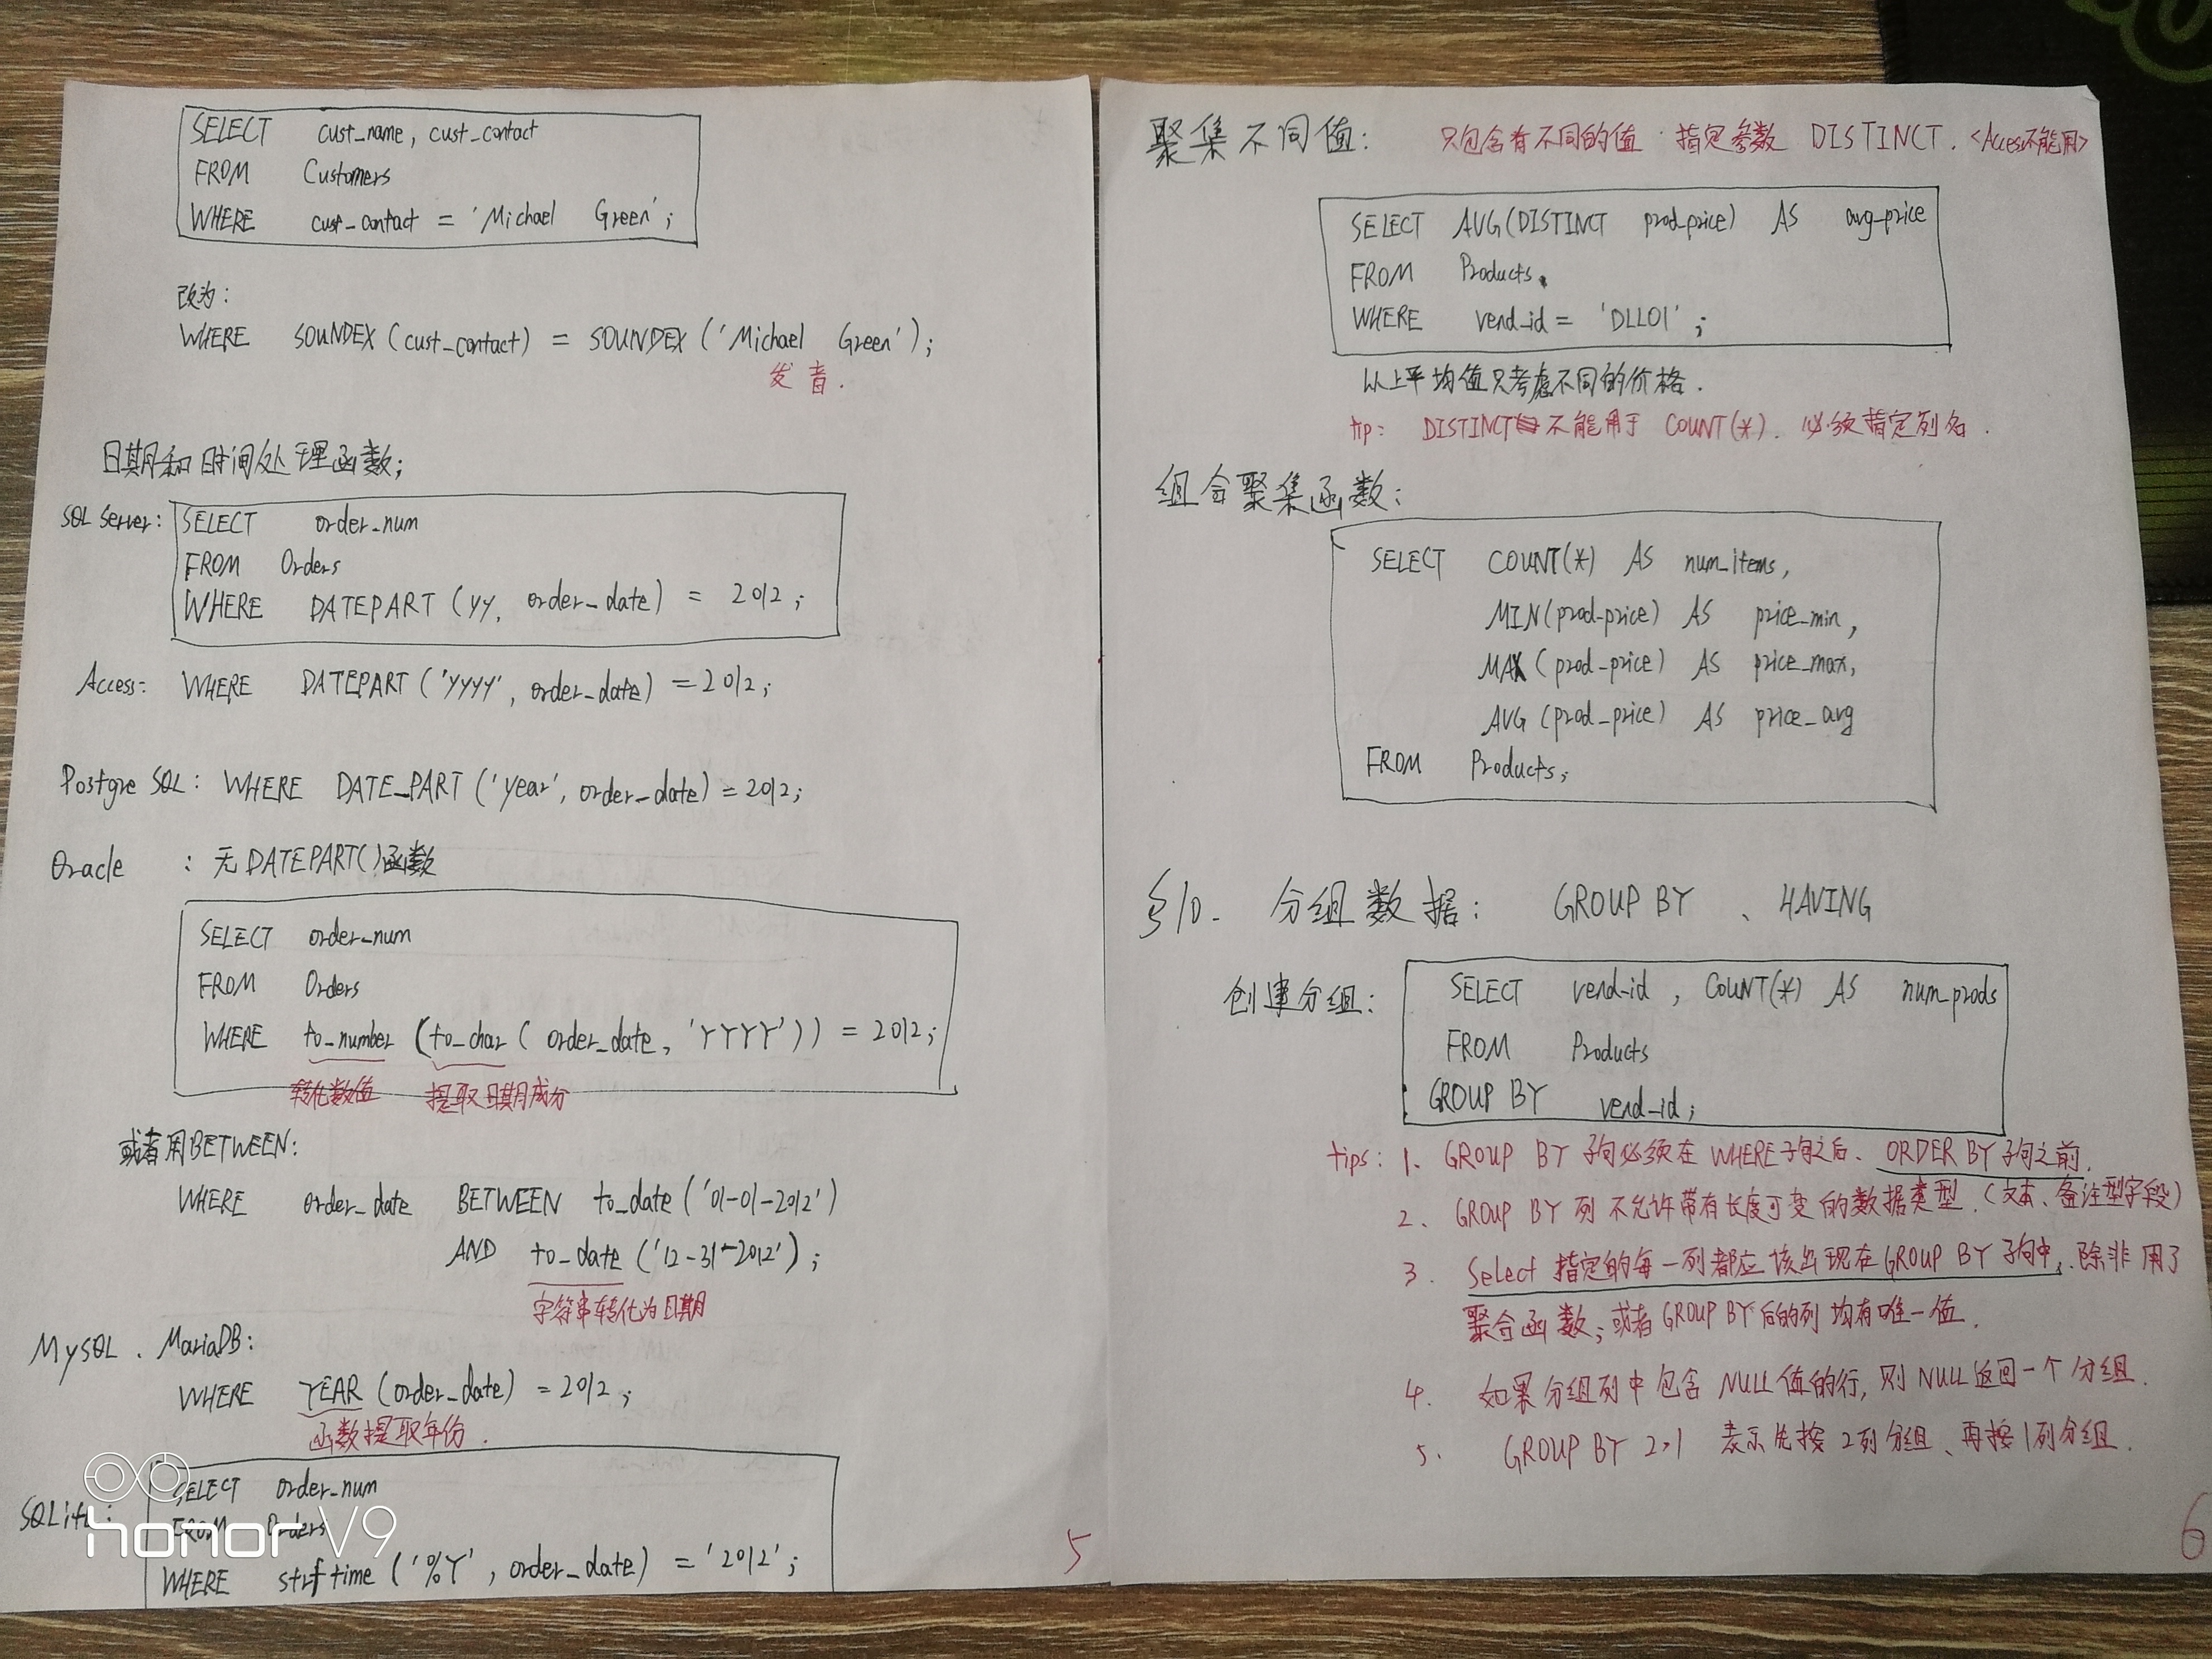 SELECT cust_name, cust_contact
FROM Customers
WHERE cust_contact = 'Michael Green';
改为:
WHERE SOUNDEX (cust_contact) = SOUNDEX ('Michael Green');
发音.
日期和时间处理函数;
SQL Server: SELECT order_num
FROM Orders
WHERE DATEPART (yy, order_date) = 2012;
Access: WHERE DATEPART ('yyyy', order_date) = 2012;
Postgre SQL: WHERE DATE_PART ('year', order_date) = 2012;
Oracle : 无DATEPART()函数
SELECT order_num
FROM Orders
WHERE to_number (to_char ( order_date, 'YYYY')) = 2012;
转化数值 提取日期成分
或者用BETWEEN:
WHERE order_date BETWEEN to_date ('01-01-2012')
AND to_date ('12-31-2012');
字符串转化为日期
MySQL、MariaDB:
WHERE YEAR (order_date) = 2012;
函数提取年份.
SQLite: SELECT order_num
FROM Orders
WHERE strftime ('%Y', order_date) = '2012';
honor V9
5
聚集不同值: 只包含有不同的值. 指定参数 DISTINCT. <Access不能用>
SELECT AVG(DISTINCT prod_price) AS avg-price
FROM Products
WHERE vend_id = 'DLL01';
以上平均值只考虑不同的价格.
tip: DISTINCT 不能用于 COUNT(*). 必须指定列名.
组合聚集函数:
SELECT COUNT(*) AS num_items,
MIN(prod-price) AS price_min,
MAX (prod_price) AS price_max,
AVG (prod_price) AS price_avg
FROM Products;
§10. 分组数据: GROUP BY 、HAVING
创建分组: SELECT vend-id , COUNT(*) AS num_prods
FROM Products
GROUP BY vend-id;
tips: 1、GROUP BY 子句必须在 WHERE子句之后、ORDER BY 子句之前.
2、GROUP BY 列不允许带有长度可变的数据类型.(文本、备注型字段)
3. Select 指定的每一列都应该出现在GROUP BY 子句中, 除非用了
聚合函数;或者GROUP BY后的列均有唯一值.
4. 如果分组列中包含 NULL 值的行,则NULL返回一个分组.
5. GROUP BY 2,1 表示先按2列分组、再按1列分组.
6